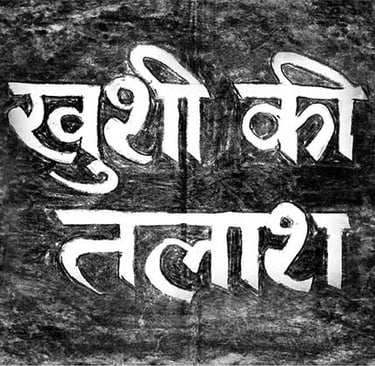 खुशी की
तलाश